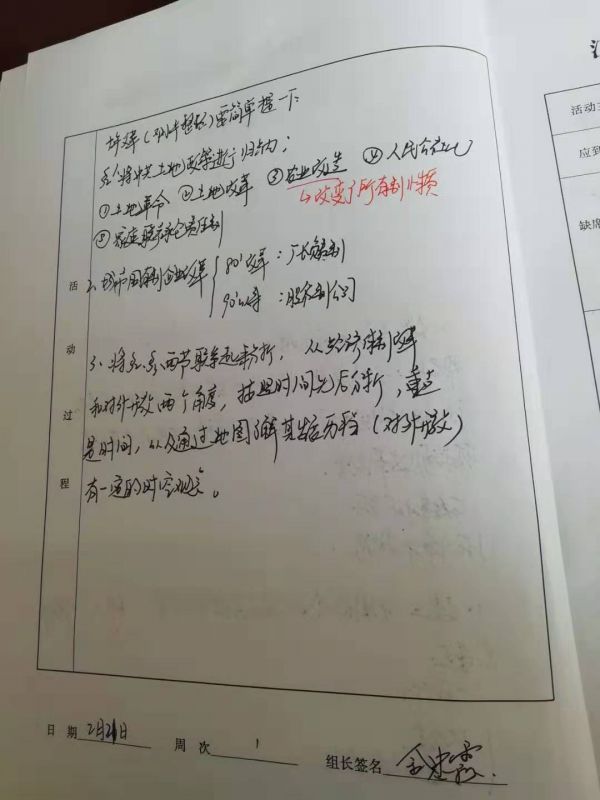 需简单提一下
纟将中共土地政策进行归纳：
①土地革命 ②土地改革 ③农业改造 ④人民公社化
↳改变了所有制性质
⑤家庭联产承包责任制
2、城市国有制企业改革 80'改革：厂长负责制
90'改革：股份制公司
3、将 两节联系起来分析，从经济体制改革
和对外开放两个角度，按照时间先后分析，重点
是时间，以及通过地图了解其 历程（对外开放）
有一定的时空观念。
活
动
过
程
日 期 2月21日 周 次 1 组长签名
活动主
应到
缺席